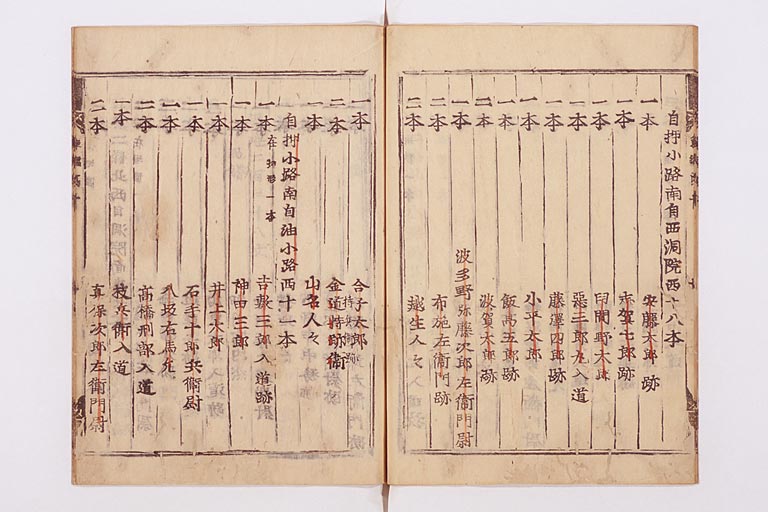 自押小路南自西洞院西十八本
一本 安藤太郎跡
一本 賀七郎跡
一本 印間野太郎
一本 三郎左入道
一本 藤澤四郎跡
一本 小平太郎
一本 飯高五郎跡
二本 波賀太郎跡
一本 波多野弥藤次郎左衛門尉
二本 布施左衛門跡
二本 越生人々
一本 合子太郎
二本 金持跡
一本 山名人々
自押小路南自油小路西十一本
一本 在 一本 吉敷三郎入道跡
一本 神田三郎
一本 井上太郎
一本 石手十郎兵衛尉
一本 八坂右馬允
二本 高橋刑部入道
一本 枝兵衛入道
二本 真保次郎左衛門尉